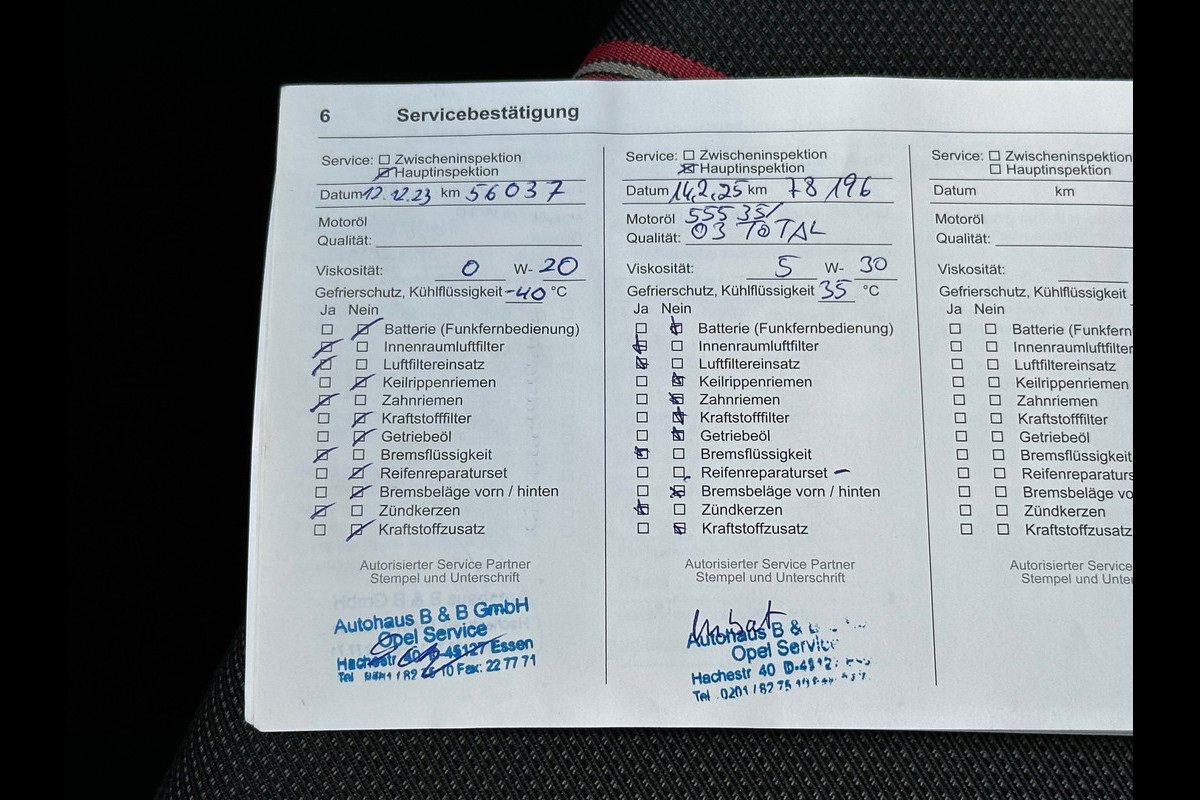 6 Servicebestätigung
Service: ☐ Zwischeninspektion
☒ Hauptinspektion
Datum 12.12.23 km 56037
Motoröl
Qualität:
Viskosität: 0 W- 20
Gefrierschutz, Kühlflüssigkeit -40 °C
Ja Nein
Batterie (Funkfernbedienung)
Innenraumluftfilter
Luftfiltereinsatz
Keilrippenriemen
Zahnriemen
Kraftstofffilter
Getriebeöl
Bremsflüssigkeit
Reifenreparaturset
Bremsbeläge vorn / hinten
Zündkerzen
Kraftstoffzusatz
Autorisierter Service Partner
Stempel und Unterschrift
Autohaus B & B GmbH
Opel Service
Hachestr 40 D-45127 Essen
Tel Fax: 22 77 71
Service: ☐ Zwischeninspektion
☒ Hauptinspektion
Datum 14.2.25 km 78196
Motoröl 555 35/
Qualität: 03 TOTAL
Viskosität: 5 W- 30
Gefrierschutz, Kühlflüssigkeit 35 °C
Ja Nein
Batterie (Funkfernbedienung)
Innenraumluftfilter
Luftfiltereinsatz
Keilrippenriemen
Zahnriemen
Kraftstofffilter
Getriebeöl
Bremsflüssigkeit
Reifenreparaturset –
Bremsbeläge vorn / hinten
Zündkerzen
Kraftstoffzusatz
Autorisierter Service Partner
Stempel und Unterschrift
Autohaus B &
Opel Service
Hachestr 40
Tel. 0201 / 82 75
Service: ☐ Zwischeninspektion
☐ Hauptinspektion
Datum km
Motoröl
Qualität:
Viskosität:
Gefrierschutz, Kühlflüssigkeit
Ja Nein
Batterie (Funkfern
Innenraumluftfilter
Luftfiltereinsatz
Keilrippenriemen
Zahnriemen
Kraftstofffilter
Getriebeöl
Bremsflüssigkeit
Reifenreparaturs
Bremsbeläge vo
Zündkerzen
Kraftstoffzusatz
Autorisierter Service
Stempel und Unter